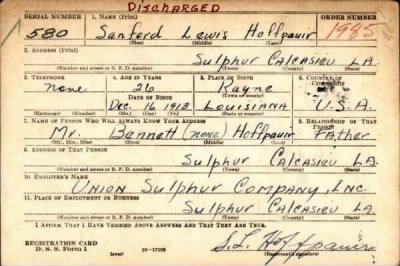 DISCHARGED
SERIAL NUMBER 1. NAME (Print) ORDER NUMBER
580 Sanford Lewis Hoffpauir 1985
(First) (Middle) (Last)
2. ADDRESS (Print)
Sulphur Calcasieu LA.
(Number and street or R. F. D. number) (Town) (County) (State)
3. TELEPHONE 4. AGE IN YEARS 5. PLACE OF BIRTH 6. COUNTRY OF
none 26 Rayne
DATE OF BIRTH (Town or county)
Dec. 16 1913 Louisiana U.S.A.
(Exchange) (Number) (Mo.) (Day) (Yr.) (State or country)
7. NAME OF PERSON WHO WILL ALWAYS KNOW YOUR ADDRESS 8. RELATIONSHIP OF THAT PERSON
Mr. Bennett (none) Hoffpauir Father
(Mr., Mrs., Miss) (First) (Middle) (Last)
9. ADDRESS OF THAT PERSON
Sulphur Calcasieu LA
(Number and street or R. F. D. number) (Town) (County) (State)
10. EMPLOYER'S NAME
Union Sulphur Company, Inc.
11. PLACE OF EMPLOYMENT OR BUSINESS
Sulphur Calcasieu LA
(Number and street or R. F. D. number) (Town) (County) (State)
I AFFIRM THAT I HAVE VERIFIED ABOVE ANSWERS AND THAT THEY ARE TRUE.
S. L. Hoffpauir
REGISTRATION CARD
D. S. S. Form 1 (over) (Registrant's signature)